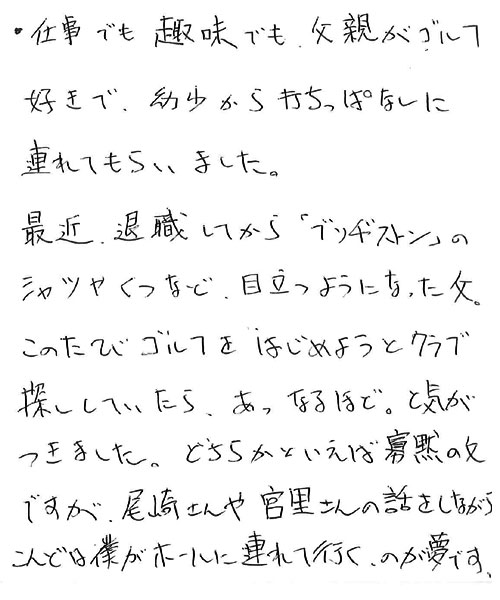 ・仕事でも趣味でも、父親がゴルフ
好きで、幼少から打ちっぱなしに
連れてもらいました。
最近、退職してから「ブリヂストン」の
シャツやくつなど、目立つようになった父。
このたびゴルフをはじめようとクラブ
探ししていたら、あっなるほど。と気が
つきました。どちらかといえば寡黙の父
ですが、尾崎さんや宮里さんの話をしながら
こんどは僕がホールに連れて行く、のが夢です、